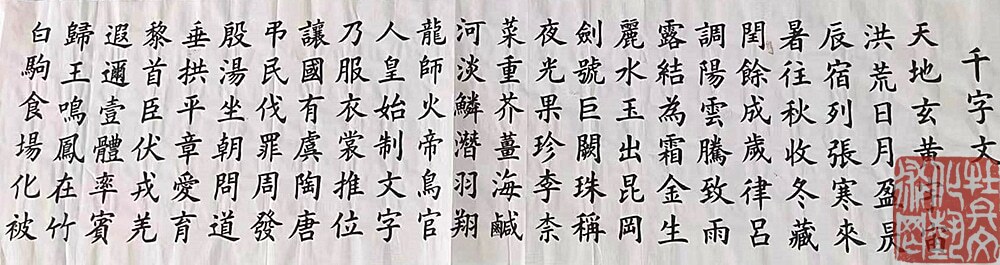 千字文
天地玄黃宇宙
洪荒日月盈昃
辰宿列張寒來
暑往秋收冬藏
閏餘成歲律呂
調陽雲騰致雨
露結為霜金生
麗水玉出昆岡
劍號巨闕珠稱
夜光果珍李柰
菜重芥薑海鹹
河淡鱗潛羽翔
龍師火帝鳥官
人皇始制文字
乃服衣裳推位
讓國有虞陶唐
弔民伐罪周發
殷湯坐朝問道
垂拱平章愛育
黎首臣伏戎羌
遐邇壹體率賓
歸王鳴鳳在竹
白駒食場化被